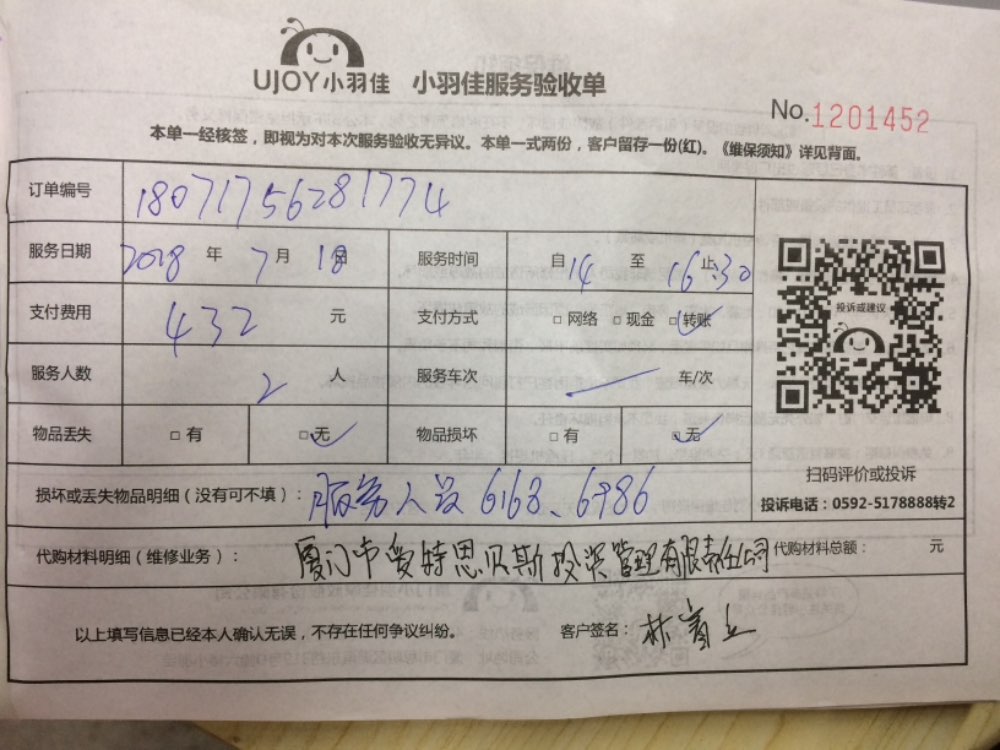 UJOY小羽佳 小羽佳服务验收单
No.1201452
本单一经核签，即视为对本次服务验收无异议。本单一式两份，客户留存一份(红)。《维保须知》详见背面。
订单编号 18071756281774
服务日期 2018 年 7 月 18 日 服务时间 自 14 至 16:30 止
支付费用 432 元 支付方式 □ 网络 □ 现金 □ 转账
投诉或建议
服务人数 2 人 服务车次 车/次
物品丢失 □ 有 □ 无 物品损坏 □ 有 □ 无
扫码评价或投诉
损坏或丢失物品明细（没有可不填）： 服务人员 6168、6986
投诉电话：0592-5178888转2
代购材料明细（维修业务）： 厦门市爱特恩贝斯投资管理有限责任公司 代购材料总额： 元
以上填写信息已经本人确认无误，不存在任何争议纠纷。 客户签名：林